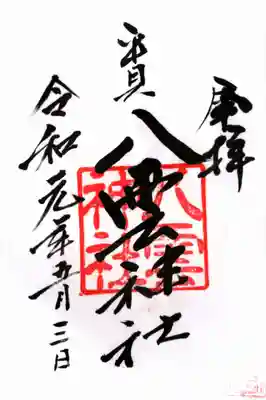 奉拝
八雲神社
八雲
神社
令和元年五月三日